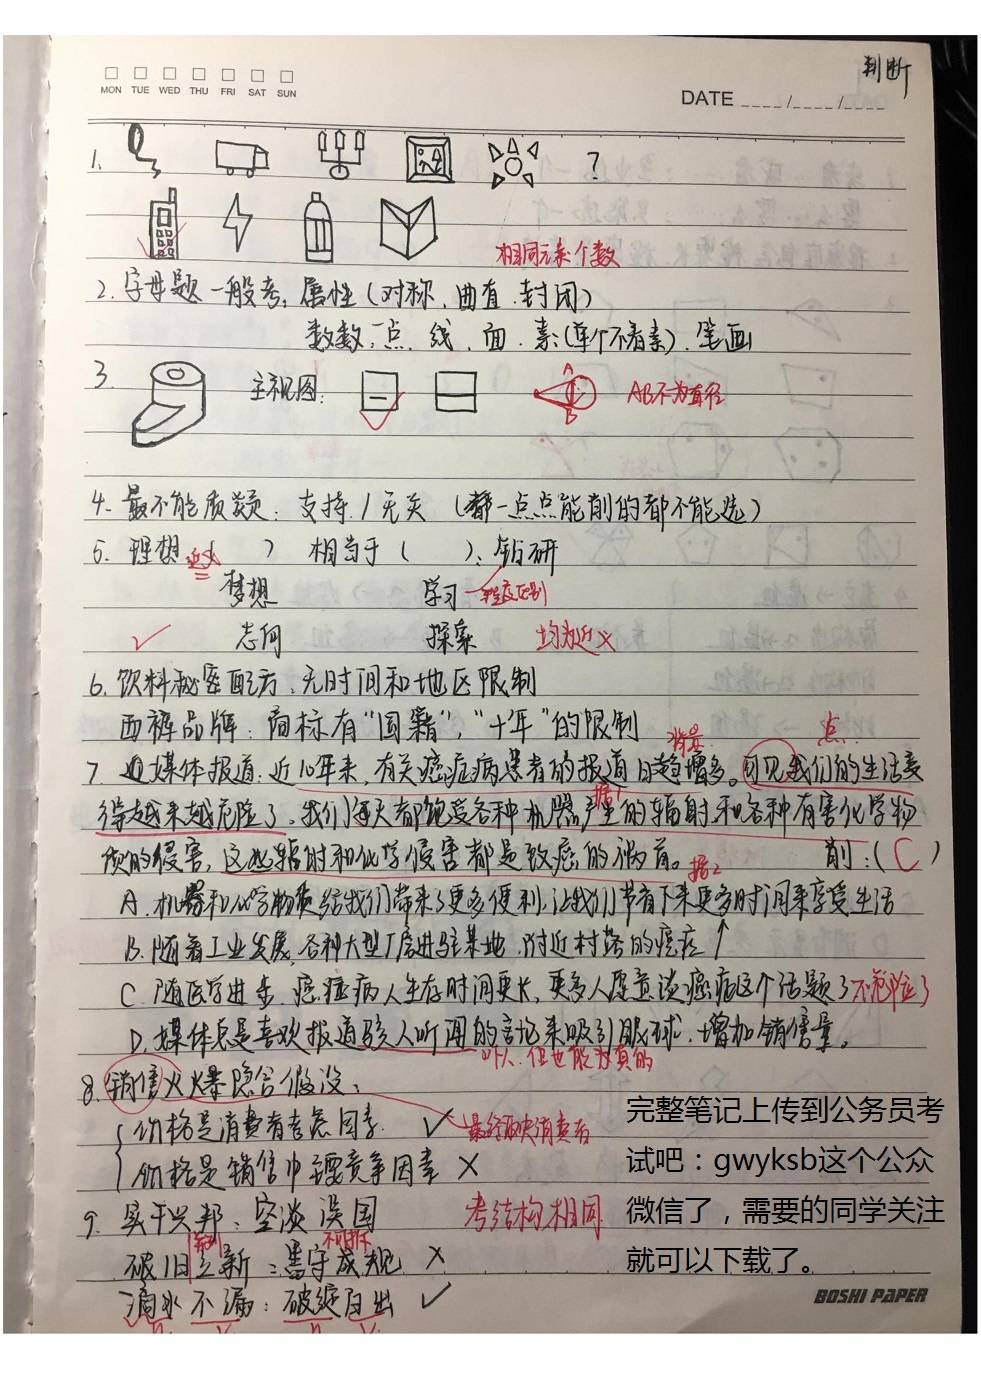 判断
MON TUE WED THU FRI SAT SUN
DATE ____/____/____
1. ?
相同元素个数
2. 字母题一般考：属性（对称、曲直、封闭）
数数：点、线、面、素（单个不看素）、笔画
3. 主视图： A B AB不为直径
4. 最不能质疑：支持/无关（都一点点能削的都不能选）
5. 理想（ ）相当于（ ）：钻研
近义
梦想 学习 程度区别
✓ 志向 探索 均为近义
6. 饮料秘密配方：无时间和地区限制
西裤品牌：商标有“国籍”，“十年”的限制
背景 点
7. 媒体报道：近10年来，有关癌症病患者的报道日趋增多。可见我们的生活变
得越来越危险了，我们每天都饱受各种机器产生的辐射和各种有害化学物
据1
质的侵害，这些辐射和化学侵害都是致癌的祸首。 削：（C）
据2
A. 机器和化学物质给我们带来了更多便利，让我们节省下来更多时间来享受生活
B. 随着工业发展，各种大型厂房进驻某地，附近村落的癌症↑
C. 随医学进步，癌症病人生存时间更长，更多人愿意谈癌症这个话题了 不危险了
D. 媒体总是喜欢报道骇人听闻的言论来吸引眼球，增加销售量。
吓人，但也能为真的
8. 销售火爆隐含假设：
价格是消费者考虑因素 ✓ 最终取决消费者
价格是销售中主要竞争因素 ×
9. 实干兴邦：空谈误国 考结构相同
不可拆
破旧立新：墨守成规 ×
滴水不漏：破绽百出 ✓
n. v. n. v.
完整笔记上传到公务员考
试吧：gwyksb这个公众
微信了，需要的同学关注
就可以下载了。
BOSHI PAPER